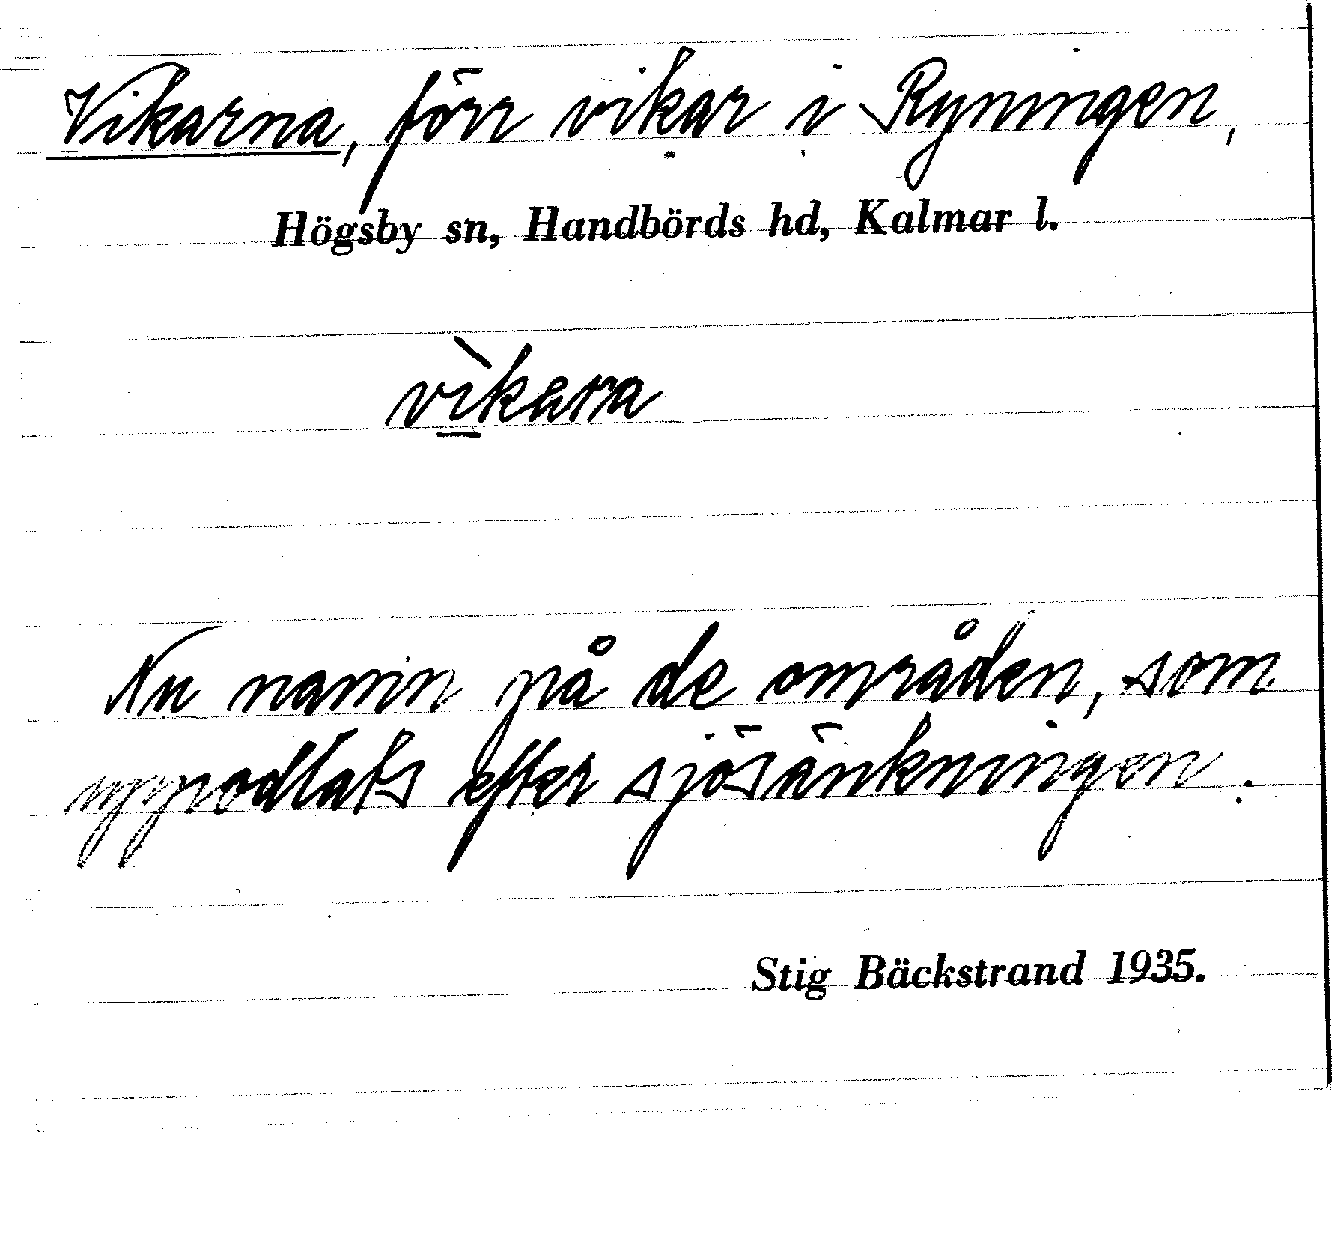 Vikarna, förr vikar i Ryningen,
Högsby sn, Handbörds hd, Kalmar l.
vì̱kara
Nu namn på de områden, som
uppodlats efter sjösänkningen.
Stig Bäckstrand 1935.